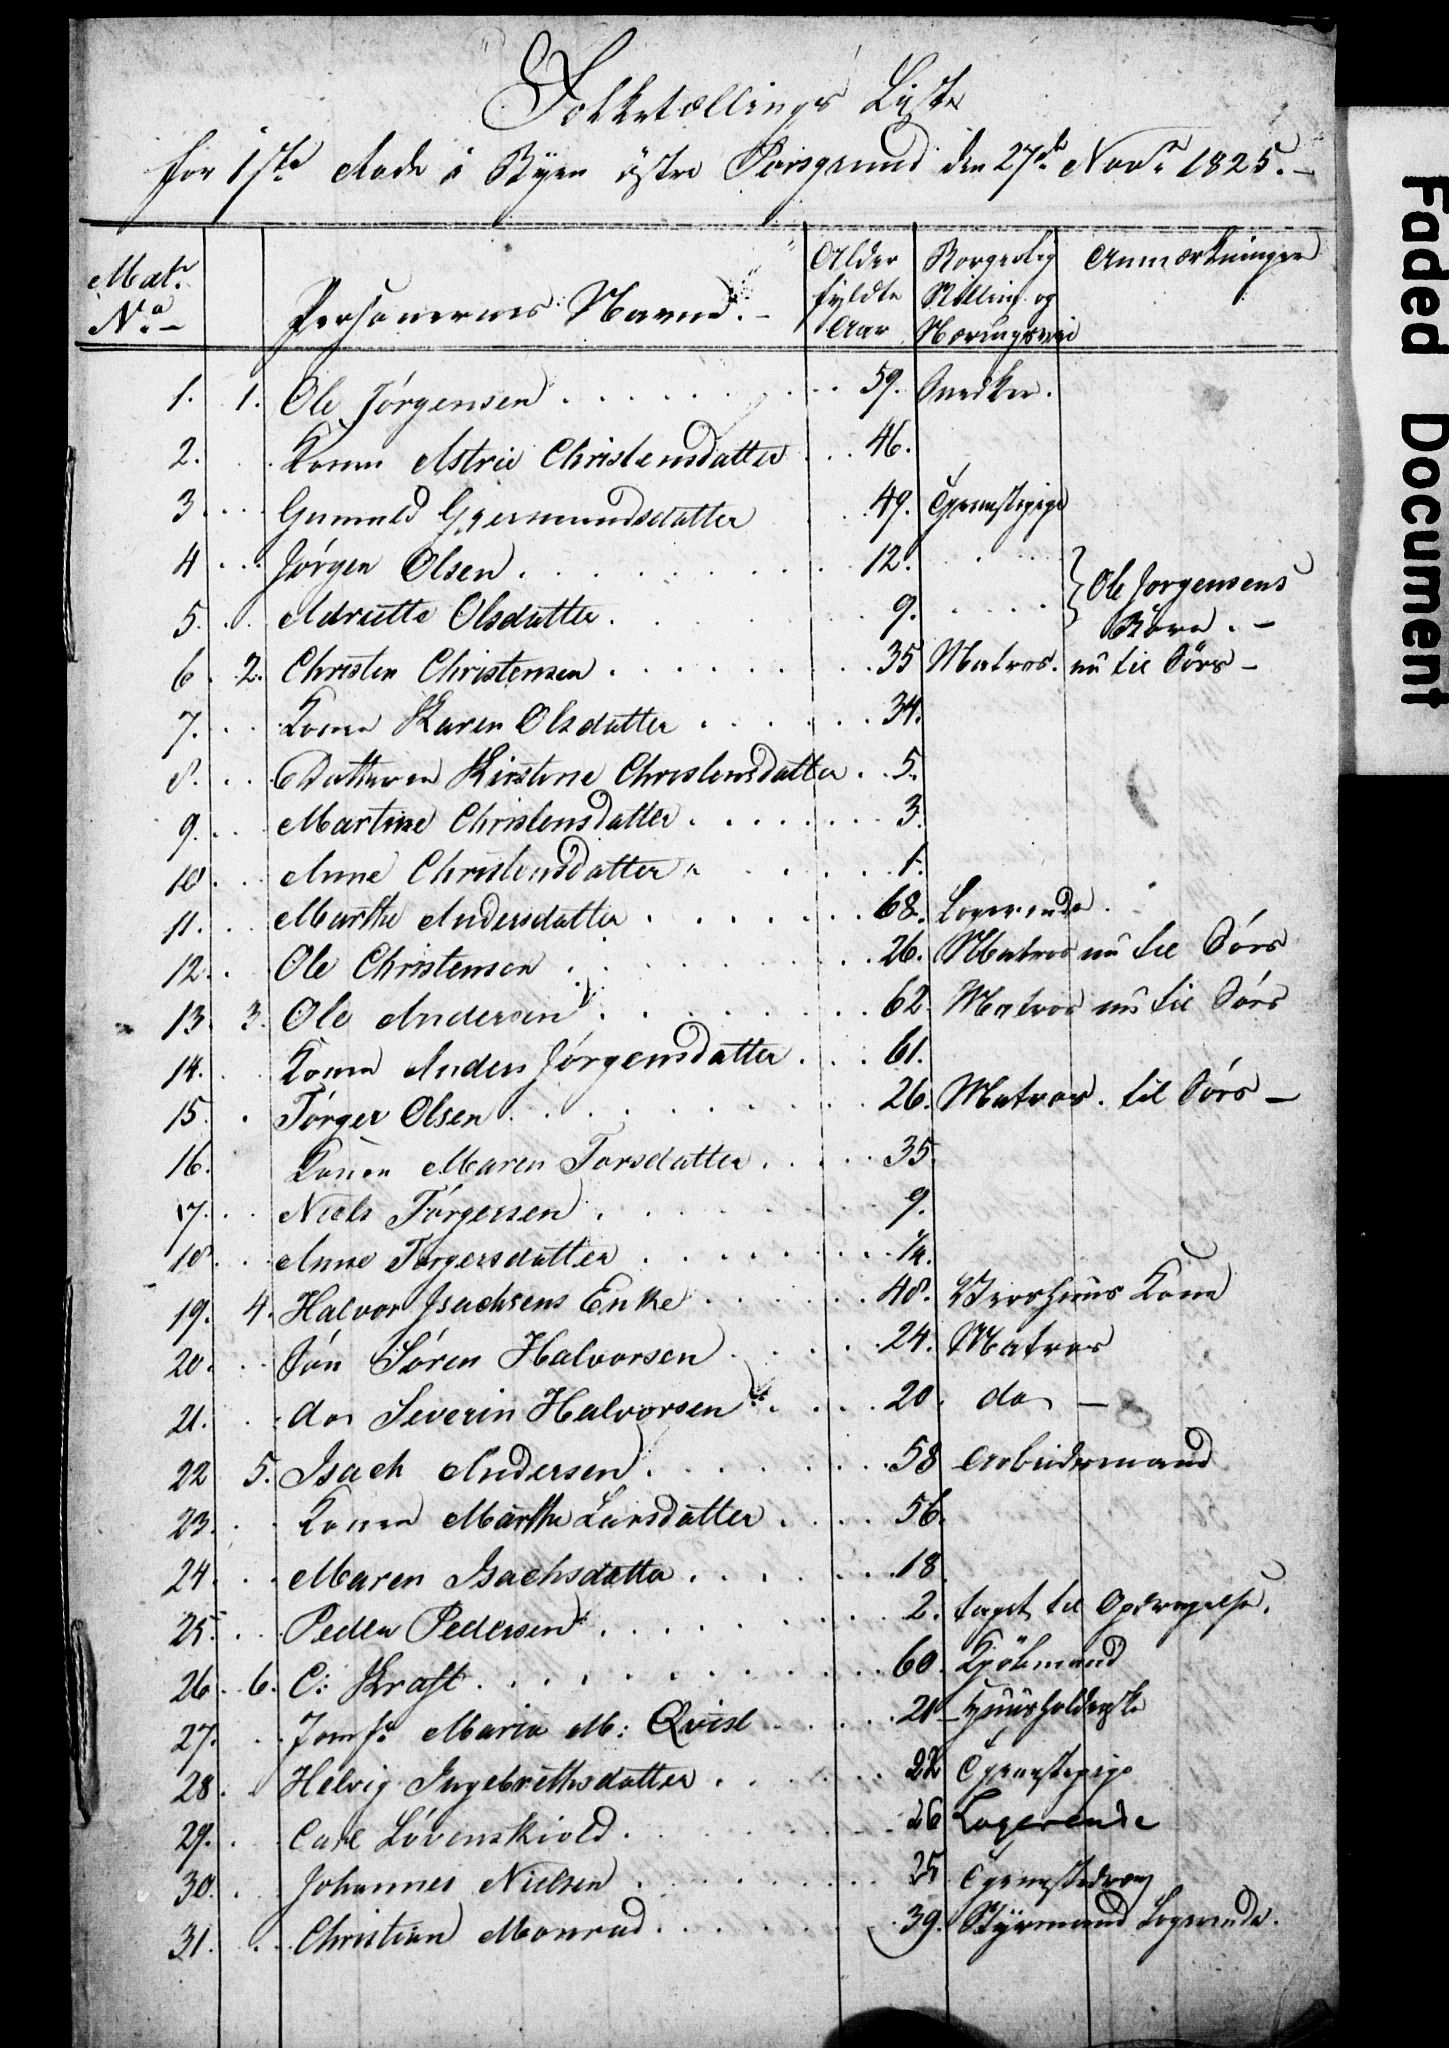 Folketællings Liste
for 1ste Rode i Byen östre Porsgrund den 27de Novr 1825. –
Matr. No – Personernes Navne. – Alder fyldte Aar Borgerlig Stilling og Næringsvei Anmærkninger
1. 1. Ole Jörgensen 59. Snedker.
2. Konen Astrie Christensdatter 46.
3 Gunnild Gjermundsdatter 49. Tjenestepige
4 Jörgen Olsen 12. } Ole Jorgensens
5. Adriette Olsdatter 9. } Börn. –
6 2. Christen Christensen 35 Matros. nu til Söes –
7. Konen Karen Olsdatter 34.
8. Datteren Kirstine Christensdatter 5.
9. Martine Christensdatter 3.
10 Anne Christensdatter 1.
11. Marthe Andersdatter 68. Logerende.
12. Ole Christensen 26. Matros nu til Söes
13. 3. Ole Andersen 62. Matros nu til Söes
14. Konen Anders Jörgensdatter 61.
15. Törger Olsen 26. Matros. til Söes –
16. Konen Maren Torsdatter 35.
17. Niels Törgersen 9.
18. Anne Törgersdatter 1/4.
19. 4. Halvor Isachsens Enke 48. Vertshuus Kone
20. Sön Sören Halvorsen 24. Matros
21. do Severin Halvorsen 20. do –
22 5. Isach Andersen 58 Arbeidsmand
23. Konen Marthe Larsdatter 56.
24. Maren Isachsdatter 18
25. Peder Pedersen 2. taget til Opdragelse.
26. 6. C: Kraft 60. Kjöbmand
27. Jomfr Maria M: Qvist 21 Huusholderske
28. Helvig Ingebrethsdatter 22 Tjenestepige
29. Carl Lövenskiold 26 Logerende
30. Johannes Nielsen 25 Tjenestedreng
31. Christian Monrad 39. Styrmand Logerende.
Faded Document